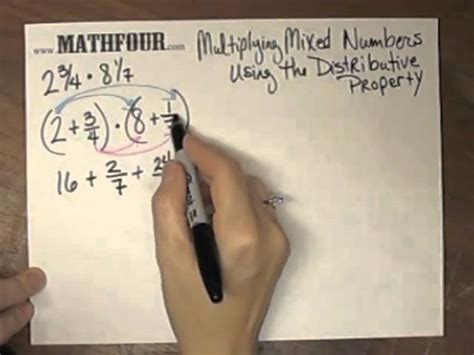 www.MATHFOUR.com
Multiplying Mixed Numbers
Using the Distributive
Property
2 3/4 · 8 1/7
(2 + 3/4) · (8 + 1/
16 + 2/7 + 24